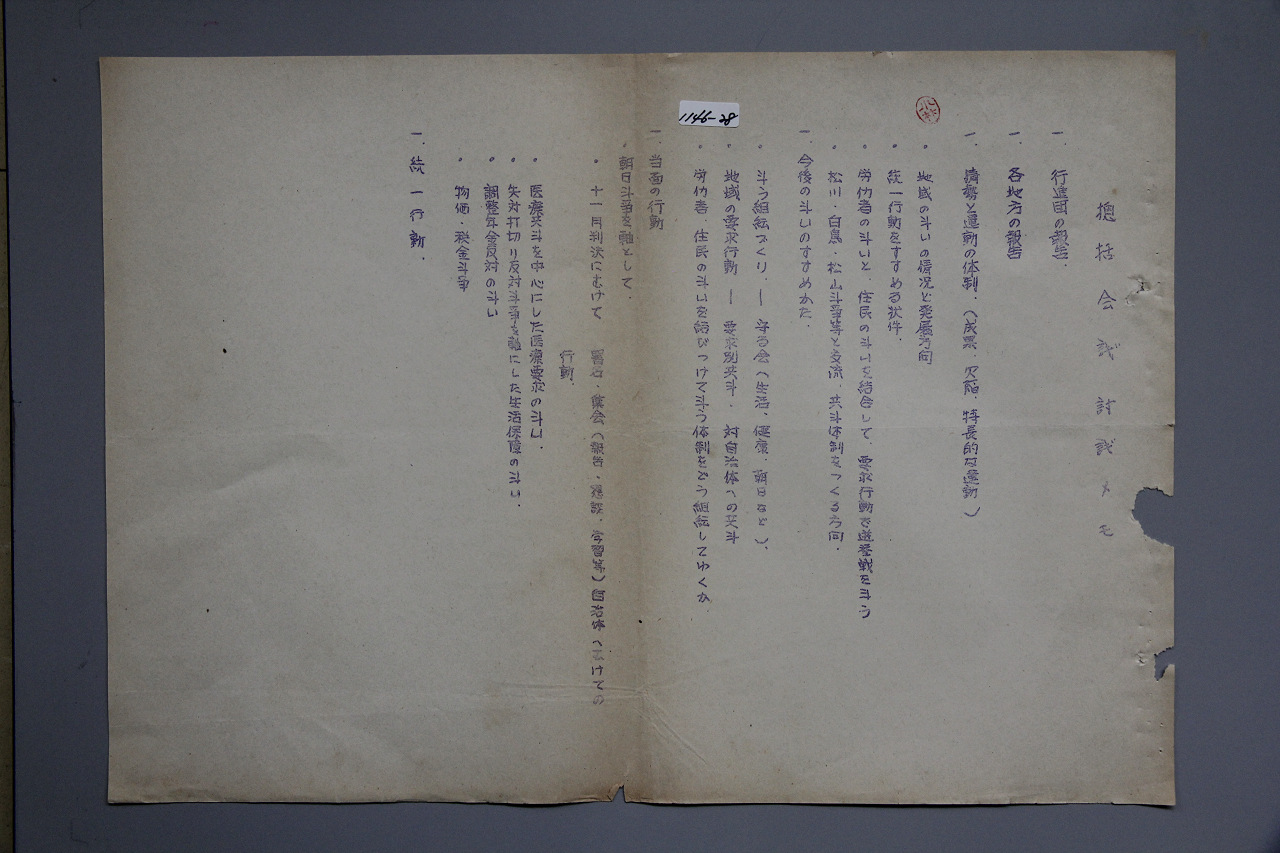 總括会議討議メモ
一. 行進団の報告.
一. 各地方の報告
一. 情勢と運動の体制.（成果.欠陥.特長的な運動）
。地域の斗いの情况と発展方向
。統一行動をすすめる状件.
。労仂者の斗いと.住民の斗いを結合して.要求行動で選挙戦を斗う
。松川.白鳥.松山斗争等と交流.共斗体制をつくる方向.
一. 今後の斗いのすすめかた.
。斗う組織づくり.ー守る会（生活、健康.朝日など）、
。地域の要求行動ー要求別共斗.対自治体への共斗
。労仂者.住民の斗いを結びつけて斗う体制をどう組織してゆくか.
一. 当面の行動
。朝日斗争を軸として.
。十一月判決にむけて 署名.集会（報告.懇談.学習等）自治体へむけての
行動.
。医療共斗を中心にした医療要求の斗い.
。失対打切り反対斗争を軸にした生活保障の斗い.
。調整年金反対の斗い
。物価.税金斗争
一. 統一行動.
1146-28